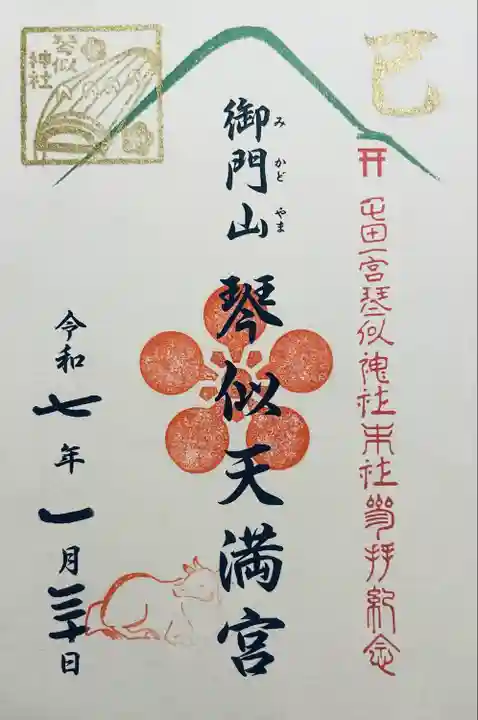 巳
屯田一宮琴似神社末社参拝紀念
御門山
みかどやま
琴似天満宮
琴似
神社
令和七年一月三十日